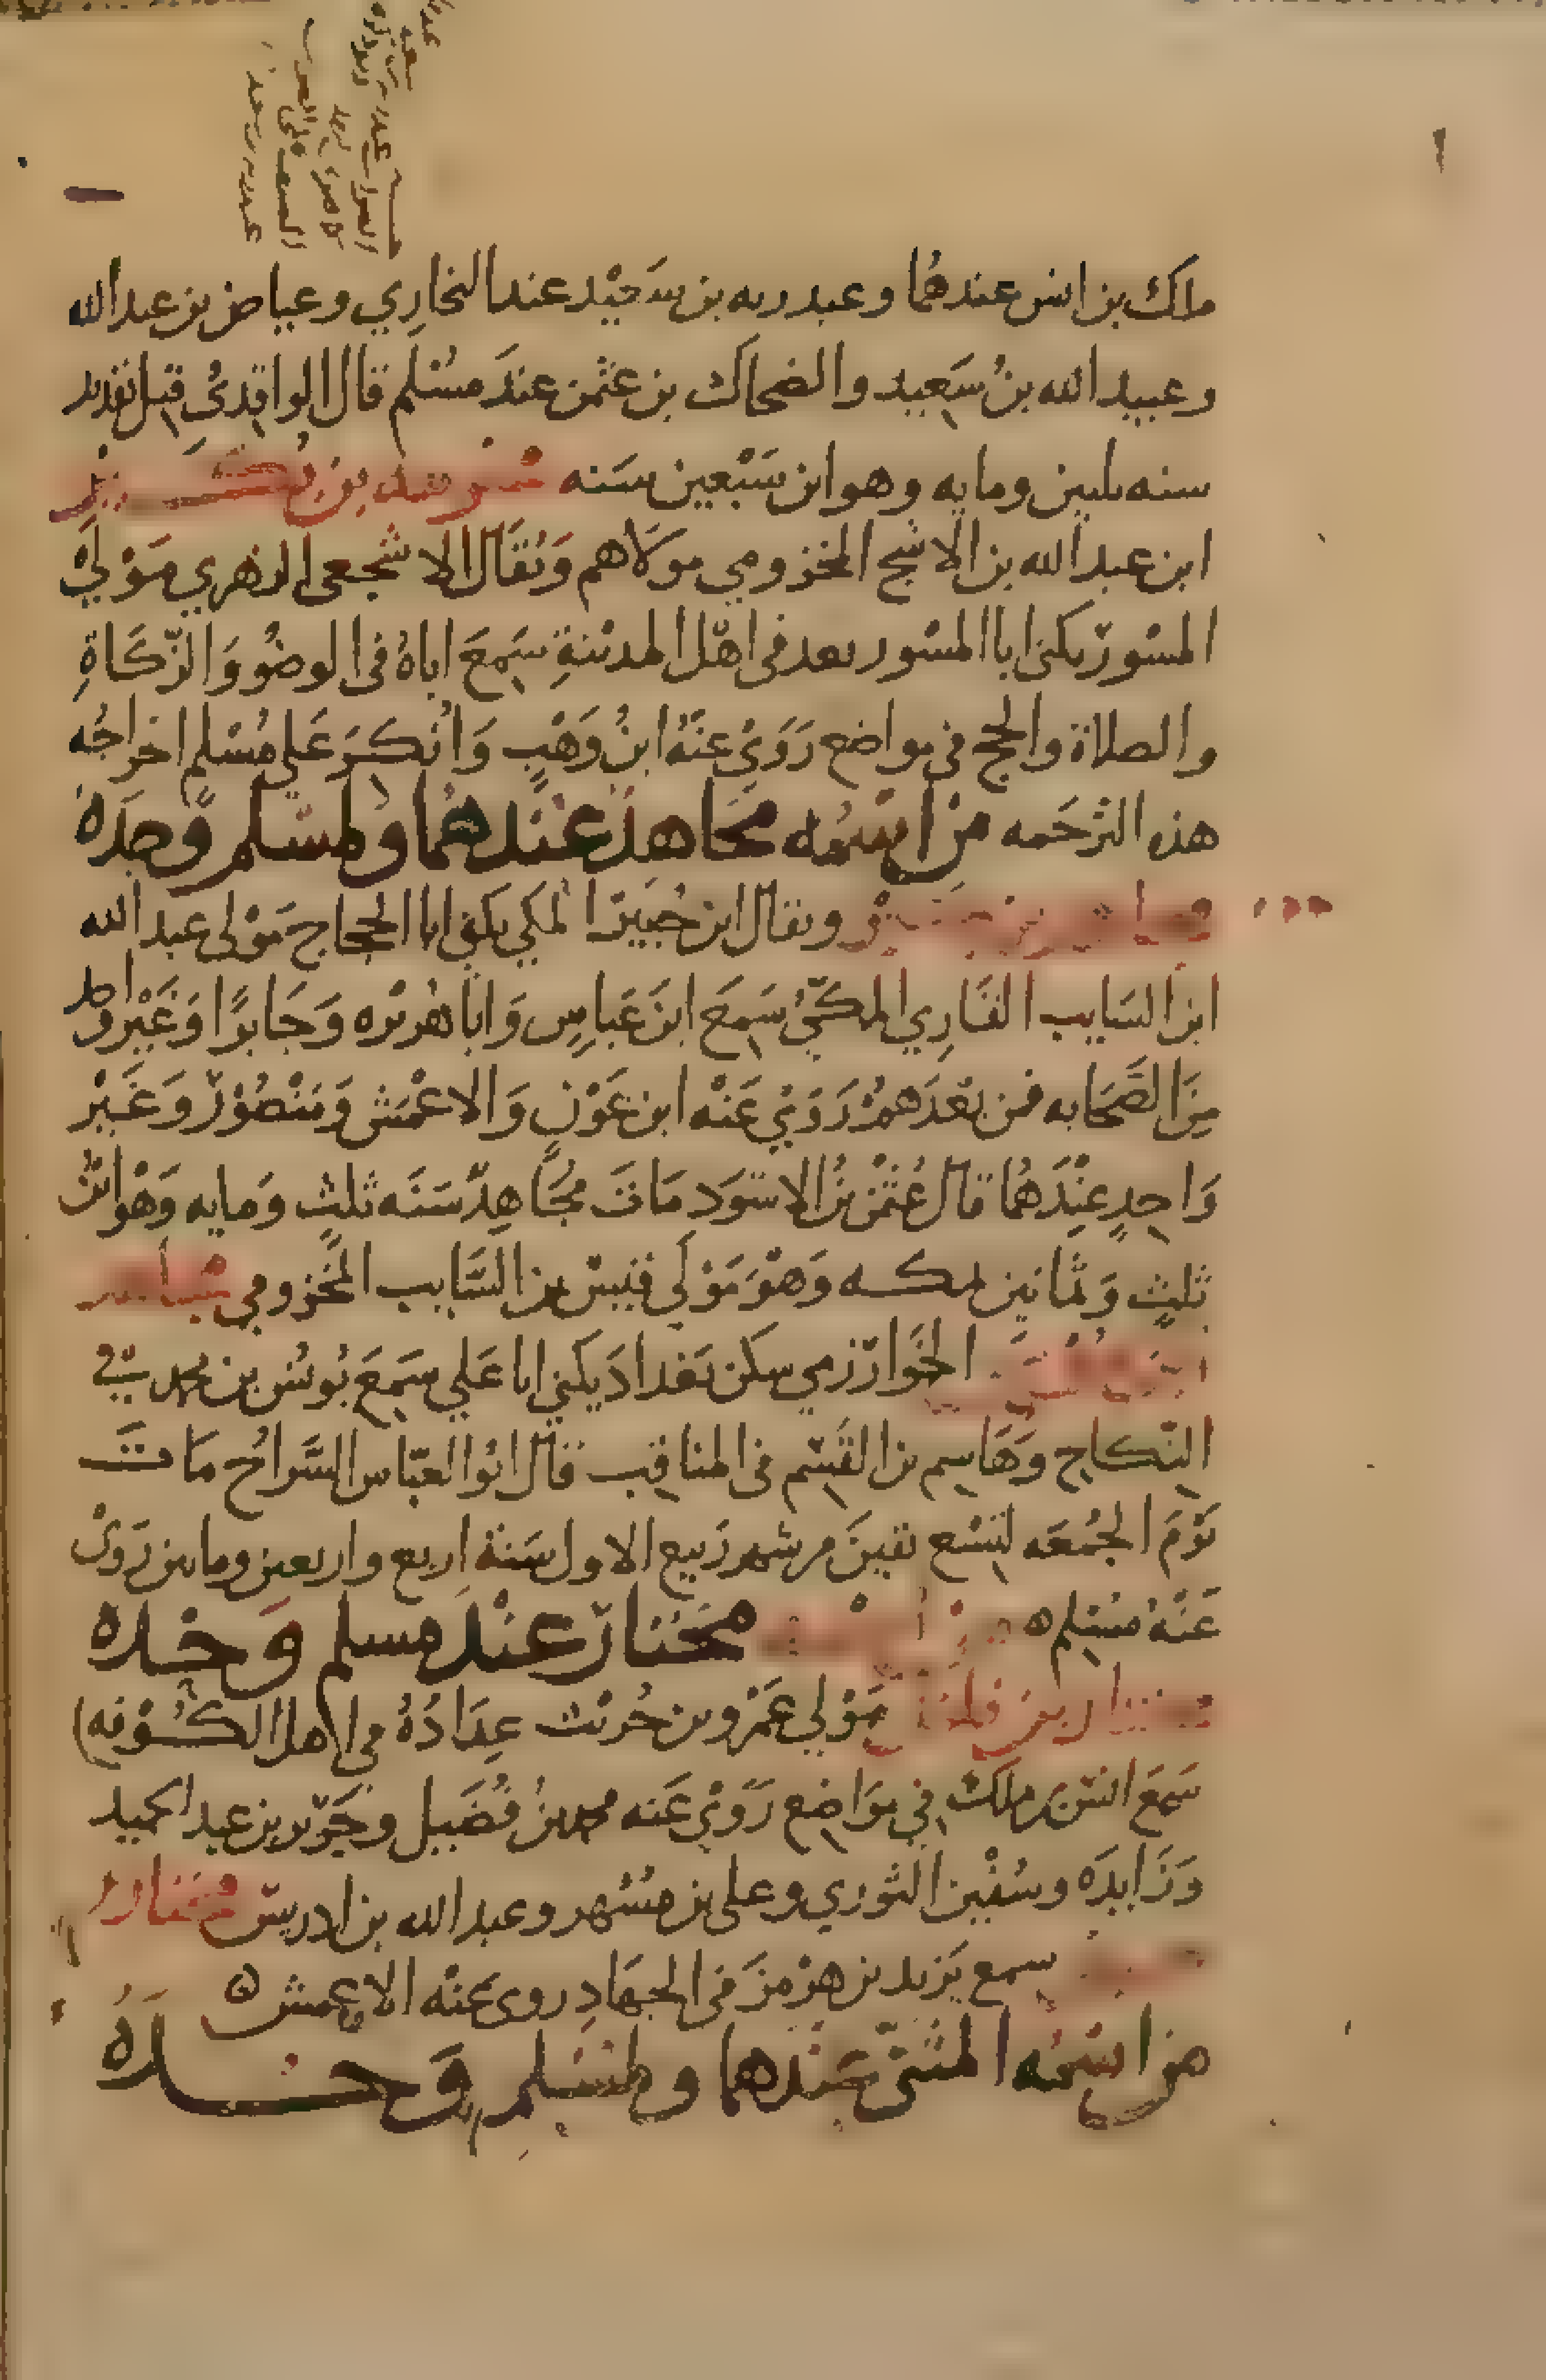 ملك بن انس عندهما وعبد ربه بن سعيد عند البخاري وعياض بن عبد الله
وعبيد الله بن سَعيد والضحاك بن عثمن عندَ مسْلم قال الواقدىُّ قتل بقديد
سنه ثلثين ومايه وهو ابن سَبْعين سَنه مخرمه بن بكير
ابن عبد الله بن الاشج المخزومي مولاهم وَيُقَال الاشجعى الزهري مَوْلى
المسْور يكنى ابا المسْور يعد في اهْل المدينةِ سَمِعَ اباهُ فى الوضُو وَالزّكَاةِ
والصلاة والحج في مواضع رَوَىْ عنْهُ ابنُ وَهْبٍ وَانكَرَ عَلي مُسْلم اخراجُه
هذه التّرجَمه مَنْ اسْمُه مجَاهدٌ عنْدهُما ولمسْلم وَحدَهُ
مجاهد بن جبر ويقال ابن جُبَيْر المكي يكنى ابا الحجاج مَوْلى عبد الله
ابن السَايب القَارِي المكّيُّ سَمِعَ ابنَ عَباسٍ وَابا هُريْره وَجَابرًا وَغَيْرَ واحد
مِنَ الصَّحَابه فمن بَعْدَهمْ رَوَىْ عَنْه ابن عَوْنٍ وَالاعْمَش وَمَنْصُوْرٌ وَغَيْر
وَاحِدٍ عِنْدَهُمَا قال عُثْمٰن بنُ الاسْوَدِ مَات مُجَاهِدٌ سَنَه ثلثٍ وَمايه وَهْو ابْنُ
ثلثٍ وَثمانين بمكه وَهْوَ مَوْلى قيسْ بن السَّايب المخْزومي مجاهد
ابن موسى الخَوارَزمي سكن بَغدادَ يكني ابا عَلي سَمِعَ يُونسُ بن محمد في
النّكاح وَهَاشِم بن القَسِم في المناقب قال ابُو العبّاس السَّراجُ مَات
يَوْمَ الجُمُعَه لتسْع بقينَ من شهر رَبيع الاول سَنة اربع واربعين ومايتين رَوَىْ
عَنْهُ مسْلم ه من اسمه مختارٌ عنْد مسلم وَحْده
مختار بن فلفل مَوْلي عَمْرو بن حُرَيْث عِدَادُهُ في اهل الكُوْفه
سَمعَ انسْ بن ملك في مَوَاضِع رَوَىْ عَنه محمد بنُ فُضَيل وجَرير بن عبد الحميد
وَزَايدَه وسُفْين الثوري وعلى بن مسْهر وعبد الله بن ادريسْ مختار
سمع يَزيد بن هُرْمزَ في الجهَادِ روى عَنْه الاعمش
من اسْمُه المثنّى عنْدهما ولمسْلم وَحْدَهُ